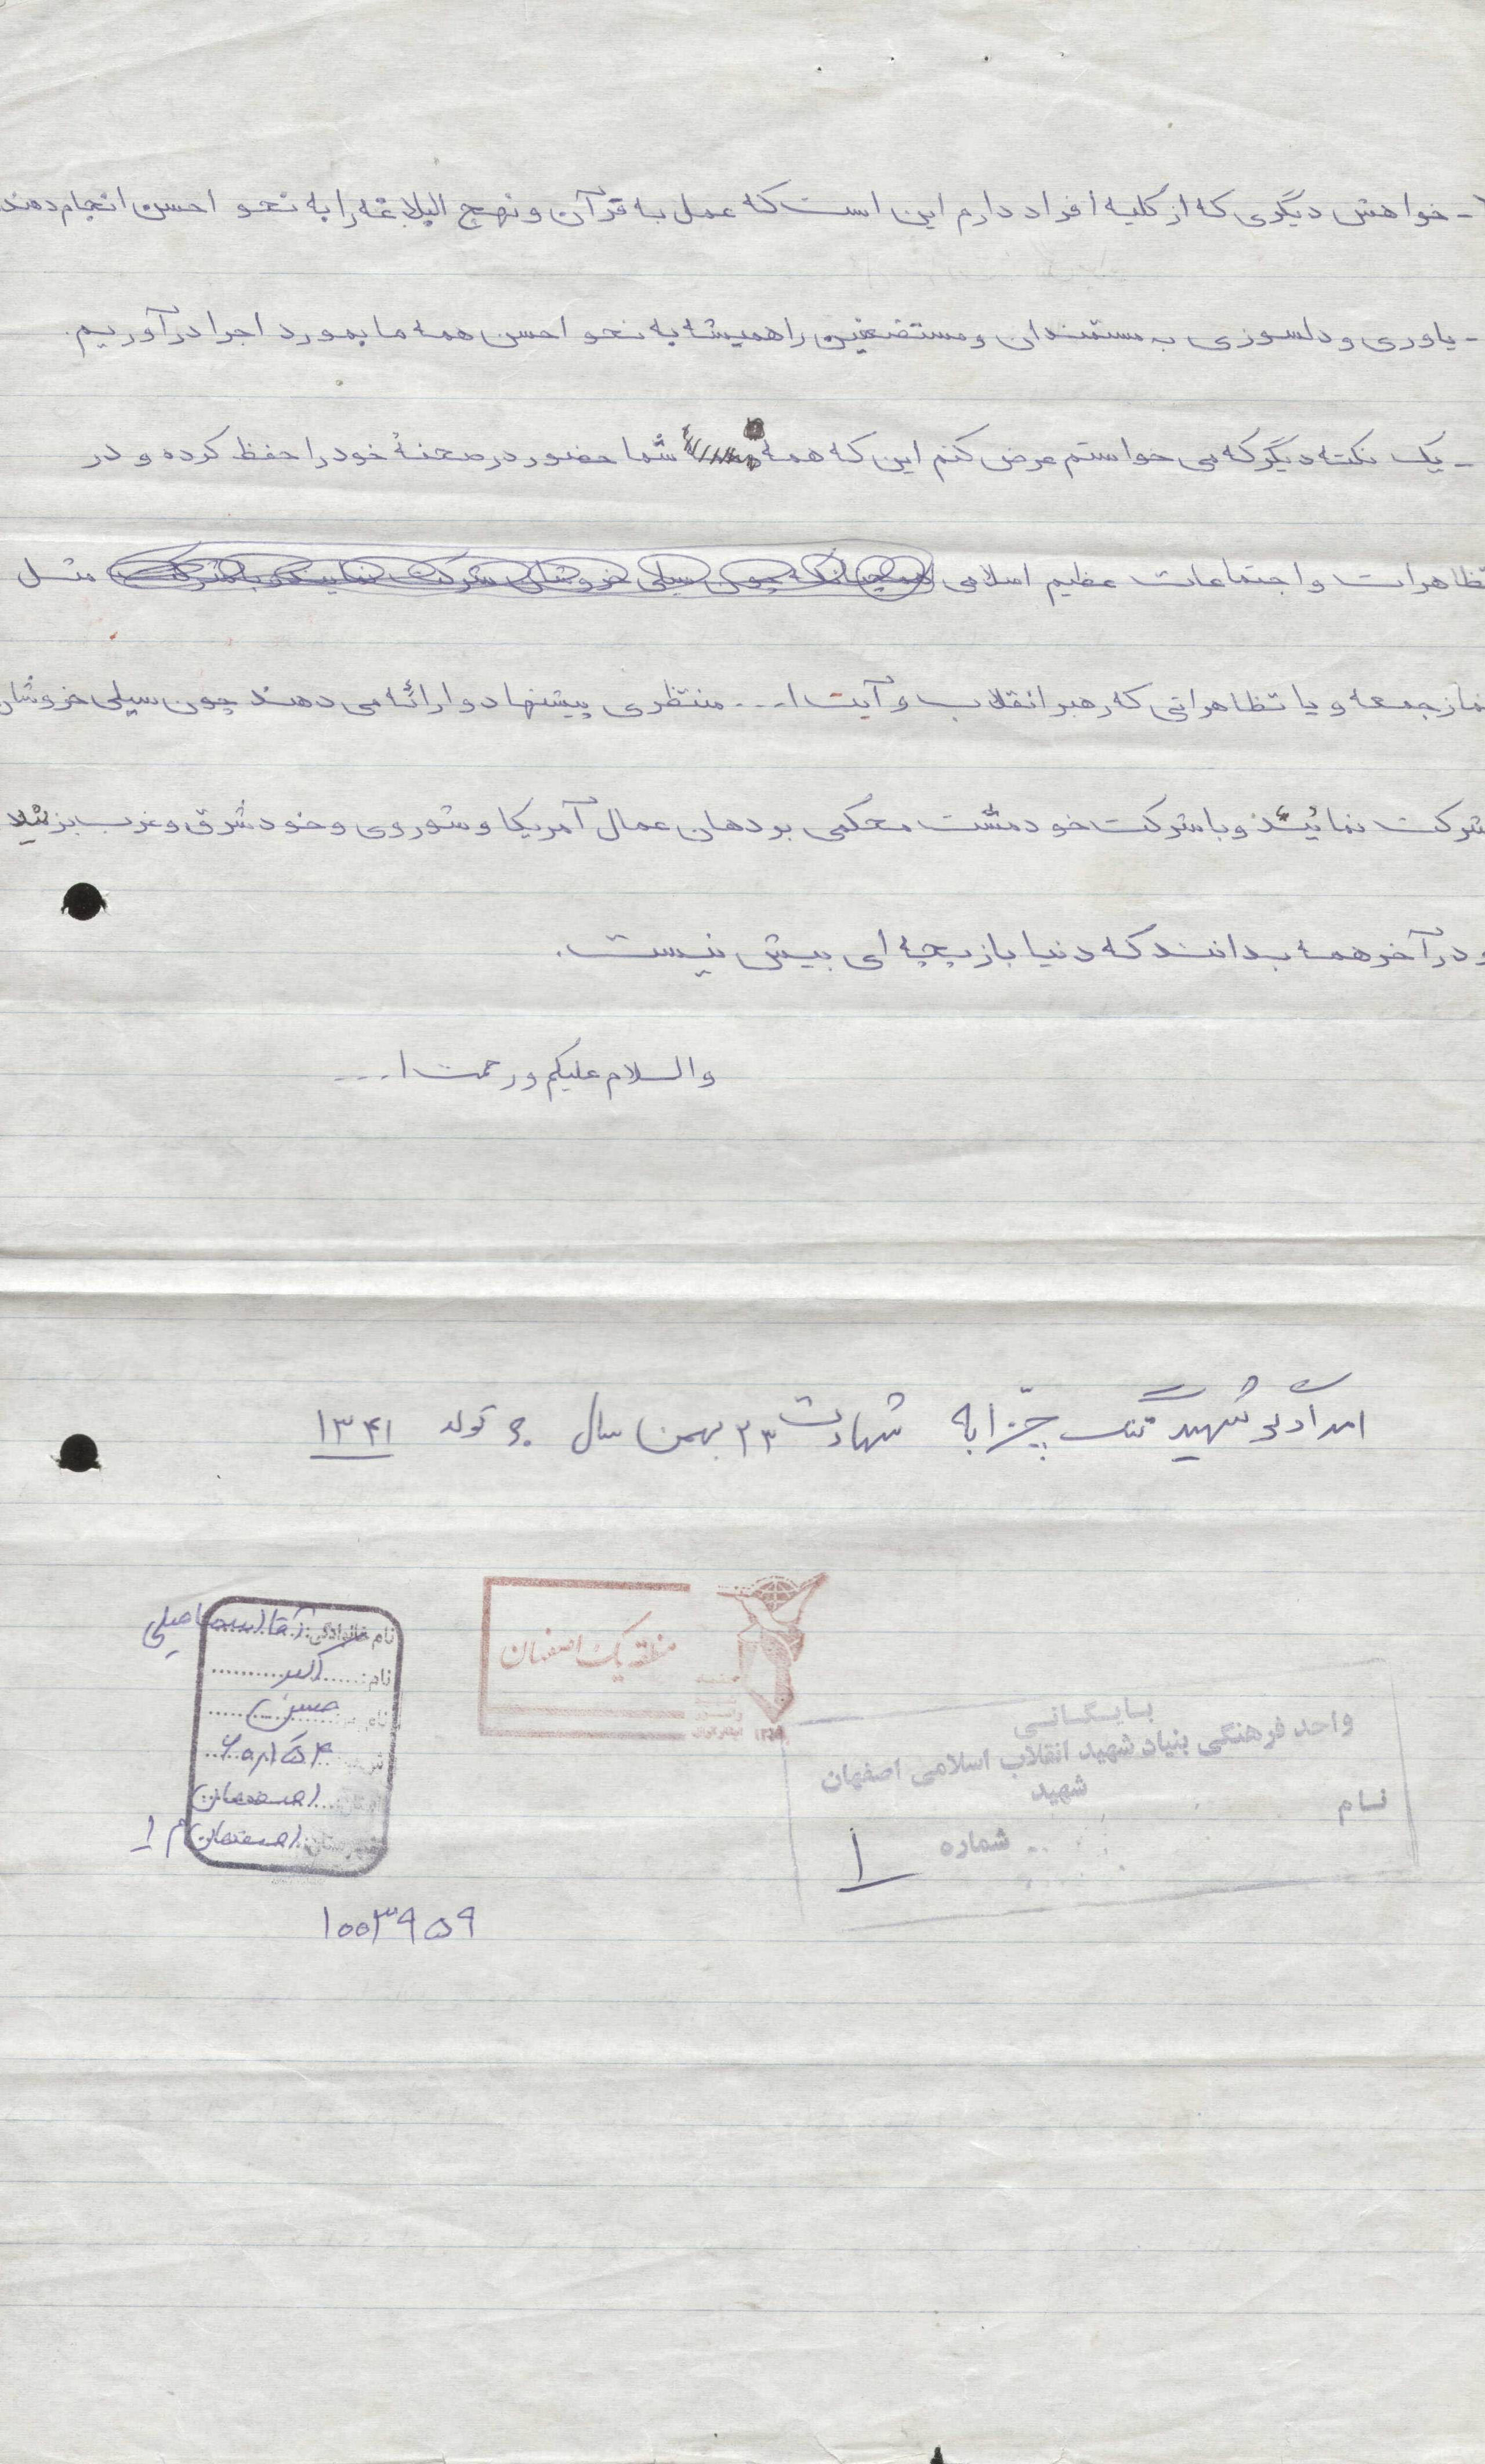 - خواهش دیگری که از کلیه افراد دارم این است که عمل به قرآن و نهج البلاغه را به نحو احسن انجام دهند
- یاوری و دلسوزی به مستمندان و مستضعفین را همیشه به نحو احسن همه ما بمورد اجرا درآوریم.
- یک نکته دیگر که می خواستم عرض کنم این که همه شما حضور در صحنهٔ خود را حفظ کرده و در
تظاهرات و اجتماعات عظیم اسلامی مثل
نماز جمعه و یا تظاهراتی که رهبر انقلاب و آیت ا... منتظری پیشنهاد و ارائه می دهند چون سیلی خروشان
شرکت نمائید و با شرکت خود مشت محکمی بر دهان عمال آمریکا و شوروی و خود شرق و غرب بزنید
و در آخر همه بدانند که دنیا بازیچه ای بیش نیست.
والسلام علیکم و رحمت ا...
امدادگر شهید تنگ چزّابه شهادت ۲۳ بهمن سال ۶۰ تولد ۱۳۴۱
نام خانوادگی: آقا اسماعیلی
نام: اکبر
نام پدر: حسن
اصفهان
شهرستان: اصفهان م ۱
منطقه یک اصفهان
بایگانی
واحد فرهنگی بنیاد شهید انقلاب اسلامی اصفهان
نام شهید
شماره ۱
۱۰۰۳۹۵۹